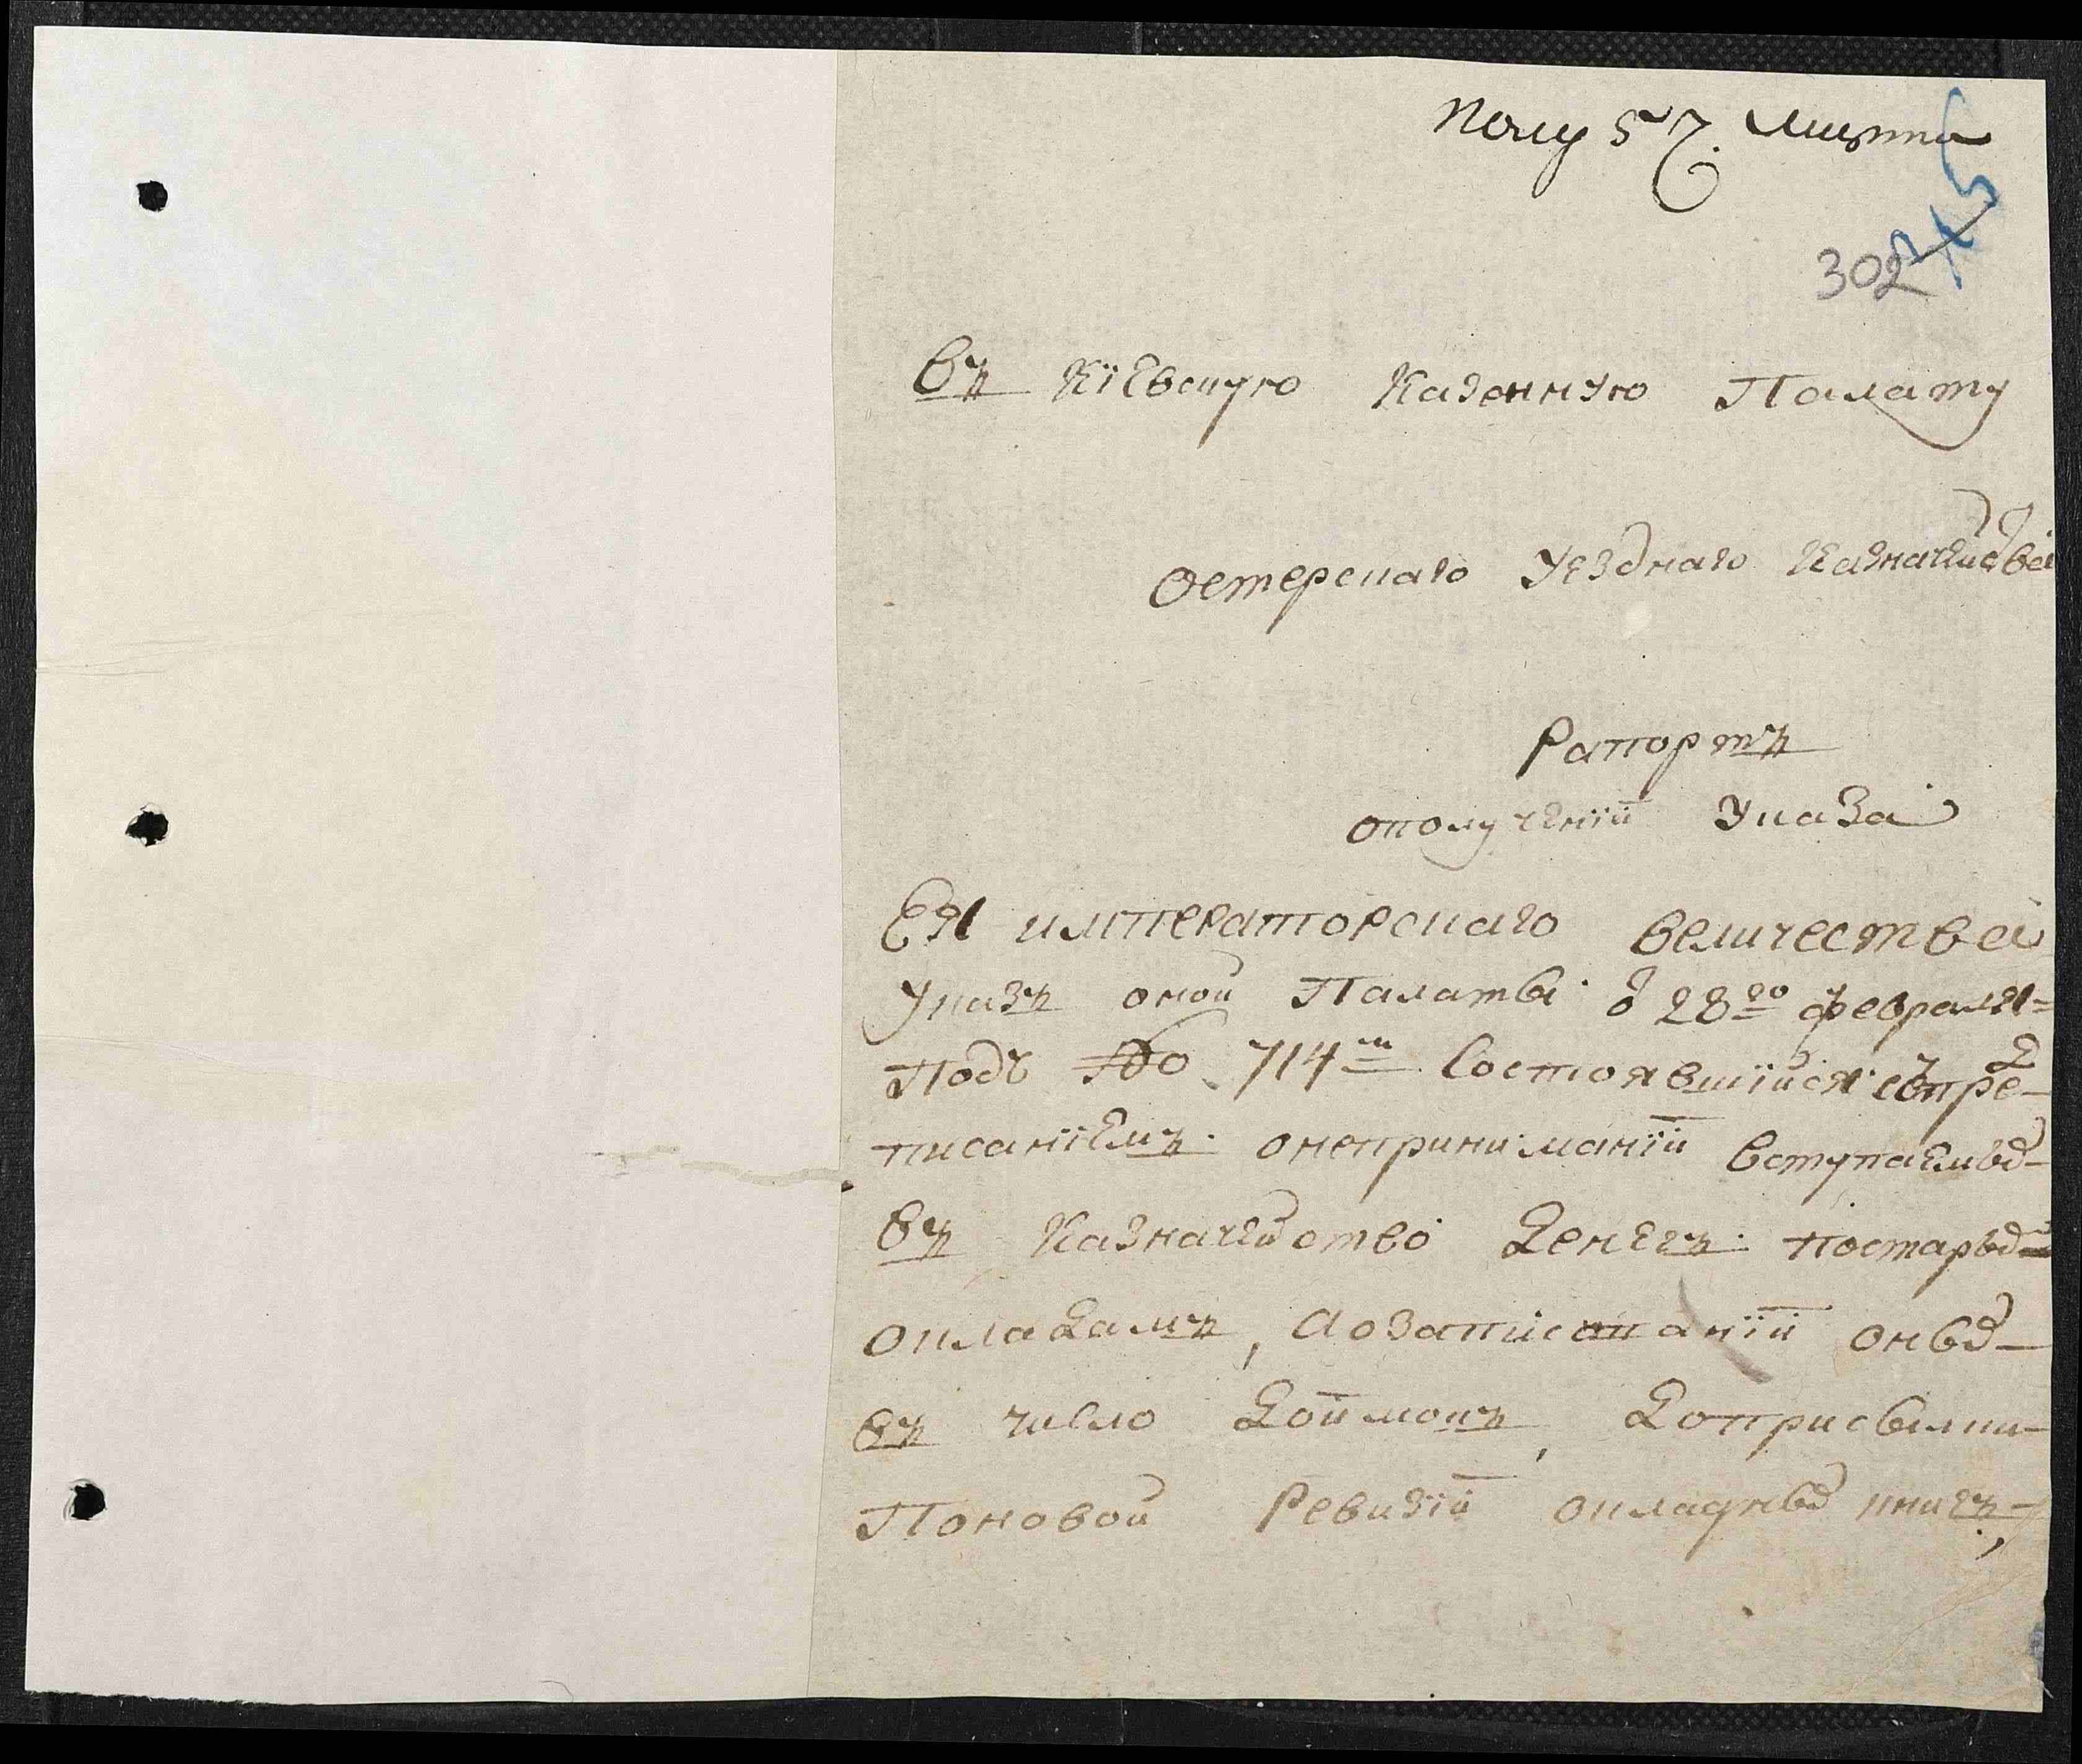 Полу 5 Ч. Марта
302
Въ Кіевскую Казенную Палату
Остерскаго Уезднаго Казначейства
Рапортъ
ополученіи Указа
Ея императорскаго величества
Указъ оной Палаты ѿ 28го февраля
Подъ No 714м Состоявшійся съпред
писаніемъ онеприниманіи вступаемых
въ Казначейство Денегъ постарым
окладамъ, аозаписаніи оных
въ число Доимокъ, Доприсылки
Поновой Ревизіи окладных книгъ,